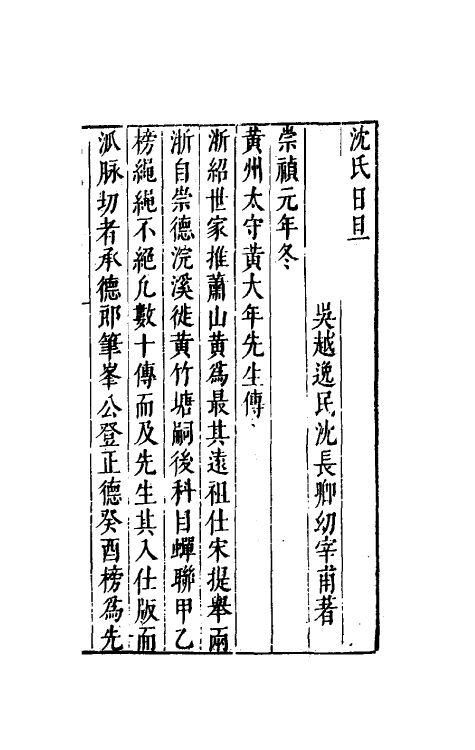 沈氏日旦
吳越逸民沈長卿幼宰甫著
崇禎元年冬
黃州太守黃大年先生傳
浙紹世家推蕭山黃爲最其遠祖仕宋提舉兩
浙自崇德浣溪徙黃竹塘嗣後科目蟬聯甲乙
榜繩繩不絕凢數十傳而及先生其入仕版而
派脉切者承德郎筆峯公登正德癸酉榜爲先